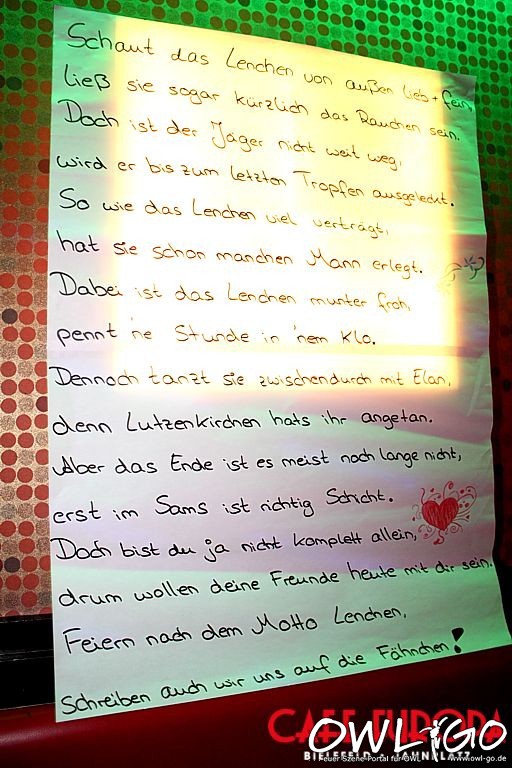 Schaut das Lenchen von außen lieb+fein,
ließ sie sogar kürzlich das Rauchen sein.
Doch ist der Jäger nicht weit weg,
wird er bis zum letzten Tropfen ausgeleckt.
So wie das Lenchen viel verträgt,
hat sie schon manchen Mann erlegt.
Dabei ist das Lenchen munter froh,
pennt 'ne Stunde in 'nem Klo.
Dennoch tanzt sie zwischendurch mit Elan,
denn Lutzenkirchen hats ihr angetan.
Aber das Ende ist es meist noch lange nicht,
erst im Sams ist richtig Schicht.
Doch bist du ja nicht komplett allein,
drum wollen deine Freunde heute mit dir sein.
Feiern nach dem Motto Lenchen,
schreiben auch wir uns auf die Fähnchen!
CAFE EUROPA
BIELEFELD • JAHNPLATZ
OWL GO
Feuer-Szene-Portal für OWL
www.owl-go.de